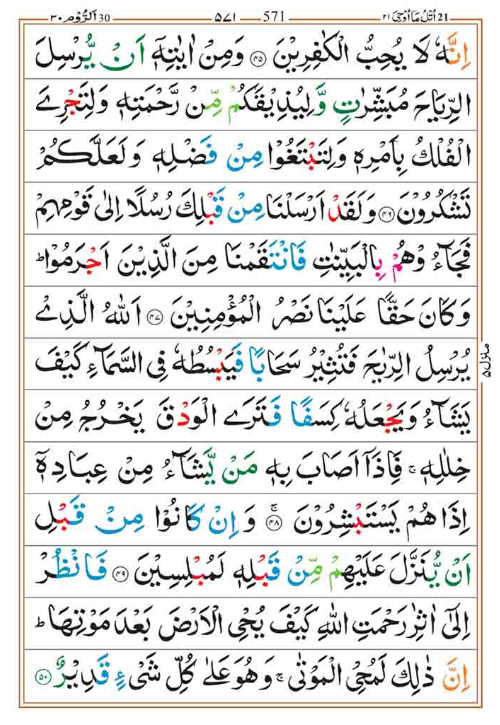 اُتْلُ مَاۤ اُوْحِیَ ۲۱ 21 571 ۵۷۱ اَلرُّوْم ۳۰ 30
اِنَّهٗ لَا یُحِبُّ الْكٰفِرِیْنَ ﴿۴۵﴾ وَمِنْ اٰیٰتِهٖۤ اَنْ یُّرْسِلَ
الرِّیَاحَ مُبَشِّرٰتٍ وَّلِیُذِیْقَكُمْ مِّنْ رَّحْمَتِهٖ وَلِتَجْرِیَ
الْفُلْكُ بِاَمْرِهٖ وَلِتَبْتَغُوْا مِنْ فَضْلِهٖ وَلَعَلَّكُمْ
تَشْكُرُوْنَ ﴿۴۶﴾ وَلَقَدْ اَرْسَلْنَا مِنْ قَبْلِكَ رُسُلًا اِلٰی قَوْمِهِمْ
فَجَآءُوْهُمْ بِالْبَیِّنٰتِ فَانْتَقَمْنَا مِنَ الَّذِیْنَ اَجْرَمُوْا ؕ
وَكَانَ حَقًّا عَلَیْنَا نَصْرُ الْمُؤْمِنِیْنَ ﴿۴۷﴾ اَللّٰهُ الَّذِیْ
یُرْسِلُ الرِّیٰحَ فَتُثِیْرُ سَحَابًا فَیَبْسُطُهٗ فِی السَّمَآءِ كَیْفَ
یَشَآءُ وَیَجْعَلُهٗ كِسَفًا فَتَرَی الْوَدْقَ یَخْرُجُ مِنْ
خِلٰلِهٖ ۚ فَاِذَاۤ اَصَابَ بِهٖ مَنْ یَّشَآءُ مِنْ عِبَادِهٖۤ
اِذَا هُمْ یَسْتَبْشِرُوْنَ ﴿۴۸﴾ وَاِنْ كَانُوْا مِنْ قَبْلِ
اَنْ یُّنَزَّلَ عَلَیْهِمْ مِّنْ قَبْلِهٖ لَمُبْلِسِیْنَ ﴿۴۹﴾ فَانْظُرْ
اِلٰۤی اٰثٰرِ رَحْمَتِ اللّٰهِ كَیْفَ یُحْیِ الْاَرْضَ بَعْدَ مَوْتِهَا ؕ
اِنَّ ذٰلِكَ لَمُحْیِ الْمَوْتٰی ۚ وَهُوَ عَلٰی كُلِّ شَیْءٍ قَدِیْرٌ ﴿۵۰﴾
منزل ۵